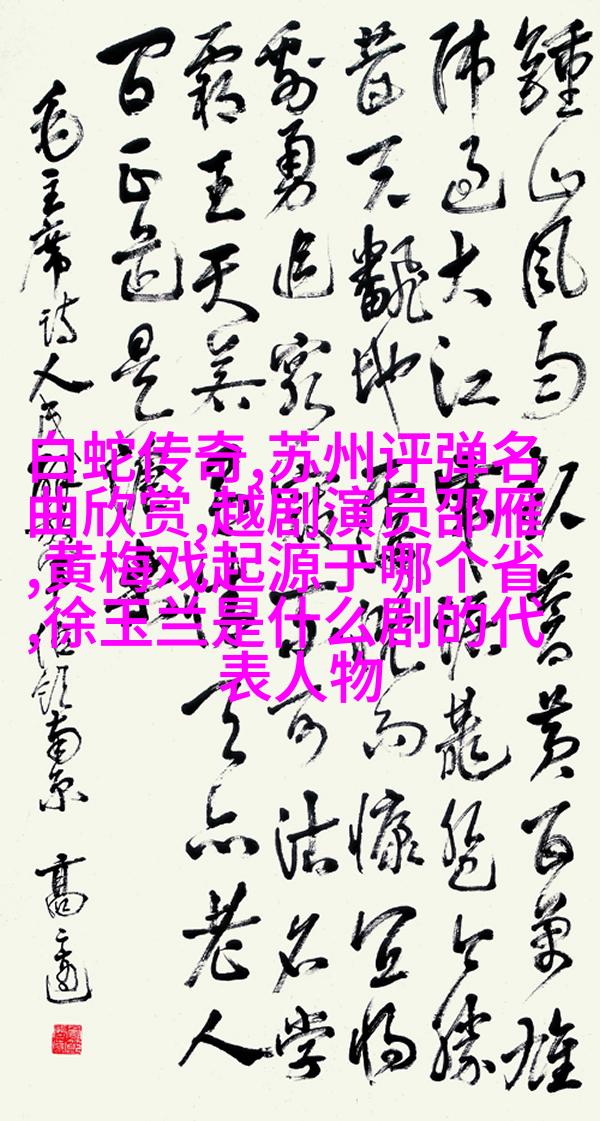 鍾山风雨起蒼黄百万雄
师过大江虎踞龍盘今胜
昔天翻地覆慨而慷宜将
剩勇追窮寇不可沽名学
霸王天若有情天亦老人
间正道是沧桑
毛主席诗人民解放军占领南京
白蛇传奇,苏州评弹名
曲欣赏,越剧演员邵雁
,黄梅戏起源于哪个省
,徐玉兰是什么剧的代
表人物